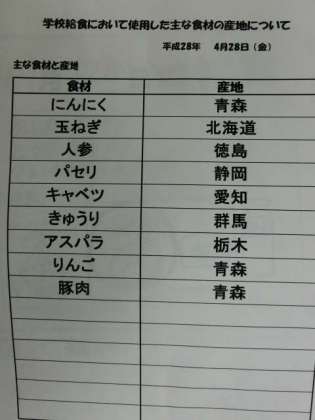 学校給食において使用した主な食材の産地について
平成28年 4月28日（金）
主な食材と産地
食材 産地
にんにく 青森
玉ねぎ 北海道
人参 徳島
パセリ 静岡
キャベツ 愛知
きゅうり 群馬
アスパラ 栃木
りんご 青森
豚肉 青森